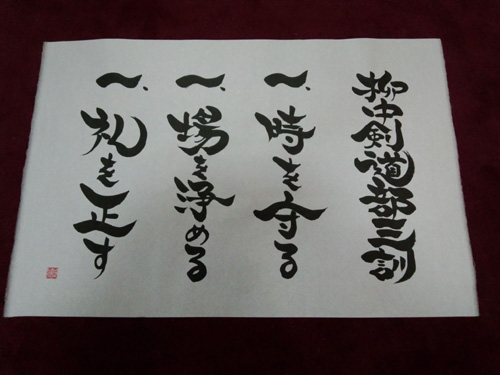 柳中剣道部三訓
一、時を守る
一、場を浄める
一、礼を正す